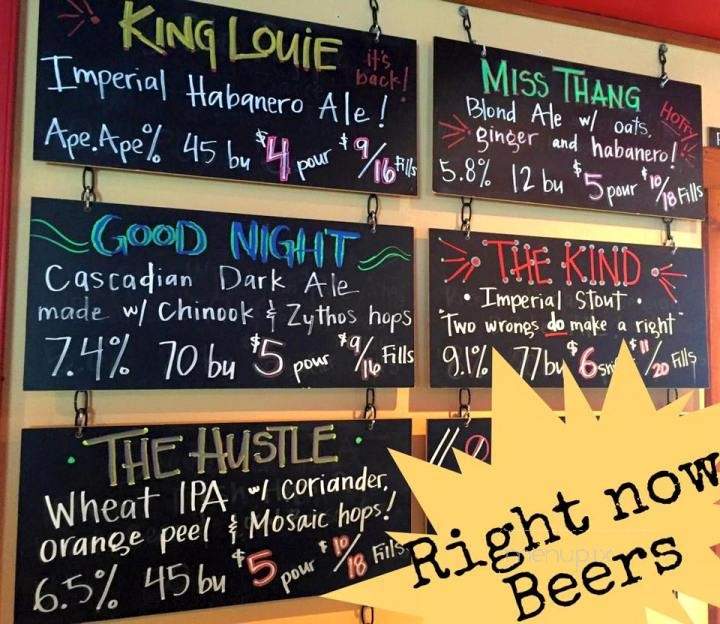 KING LOUIE
it's back!
Imperial Habanero Ale!
Ape.Ape% 45 bu $4 pour $9/16 Fills
MISS THANG
HOTTY!
Blond Ale w/ oats,
ginger and habanero!
5.8% 12 bu $5 pour $10/18 Fills
GOOD NIGHT
Cascadian Dark Ale
made w/ Chinook & Zythos hops
7.4% 70 bu $5 pour $9/16 Fills
THE KIND
• Imperial Stout •
"Two wrongs do make a right"
9.1% 77bu $6 $11/20 Fills
THE HUSTLE
Wheat IPA w/ coriander,
orange peel & Mosaic hops!
6.5% 45 bu $5 pour $10/18 Fills
Right now
Beers